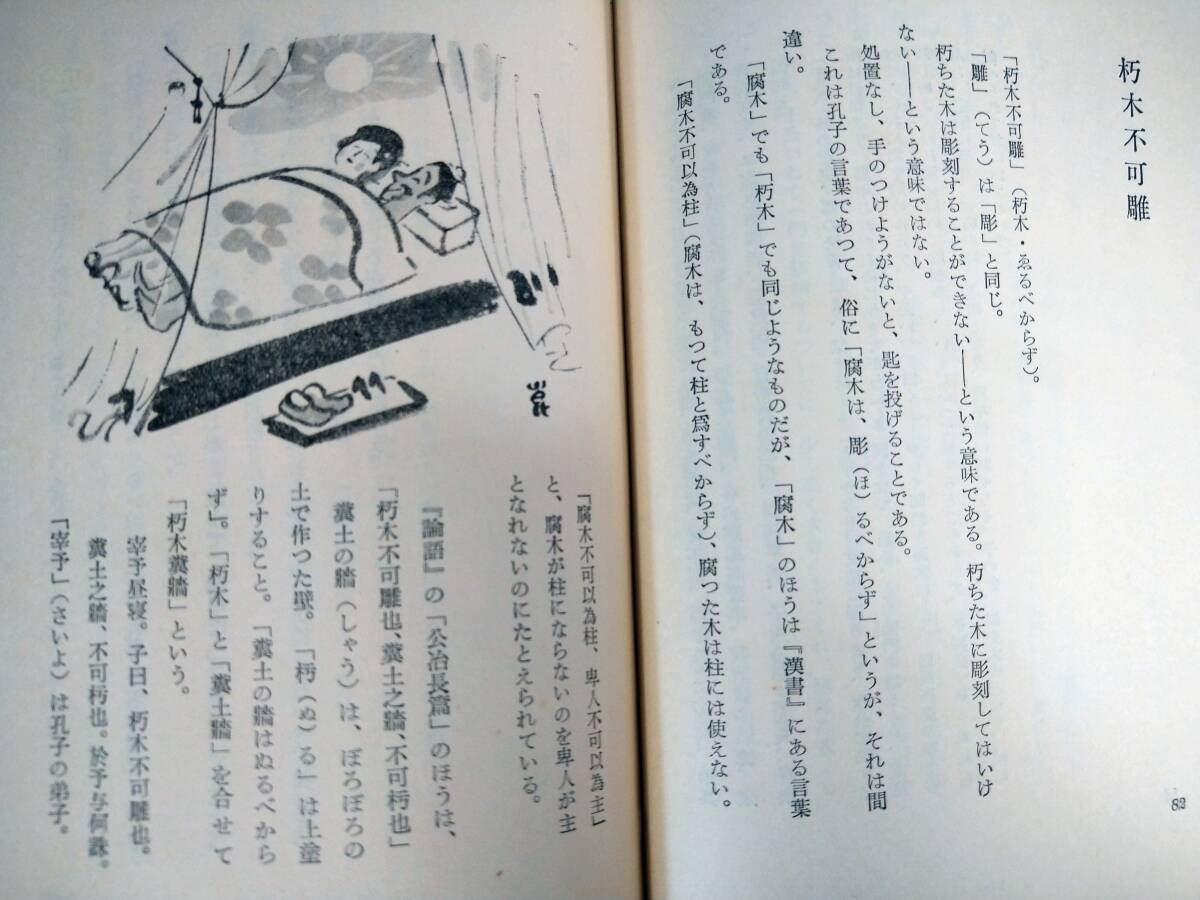 朽木不可雕
「朽木不可雕」（朽木・ゑるべからず）。
「雕」（てう）は「彫」と同じ。
朽ちた木は彫刻することができない――という意味である。朽ちた木に彫刻してはいけ
ない――という意味ではない。
処置なし、手のつけようがないと、匙を投げることである。
これは孔子の言葉であつて、俗に「腐木は、彫（ほ）るべからず」というが、それは間
違い。
「腐木」でも「朽木」でも同じようなものだが、「腐木」のほうは『漢書』にある言葉
である。
「腐木不可以為柱」（腐木は、もつて柱と爲すべからず）、腐つた木は柱には使えない。
82
「腐木不可以為柱、卑人不可以為主」
と、腐木が柱にならないのを卑人が主
となれないのにたとえられている。
『論語』の「公冶長篇」のほうは、
「朽木不可雕也、糞土之牆、不可杇也」
糞土の牆（しゃう）は、ぼろぼろの
土で作つた壁。「杇（ぬ）る」は上塗
りすること。「糞土の牆はぬるべから
ず」。「朽木」と「糞土牆」を合せて
「朽木糞牆」という。
宰予昼寝。子曰、朽木不可雕也。
糞土之牆、不可杇也。於予与何誅。
「宰予」（さいよ）は孔子の弟子。